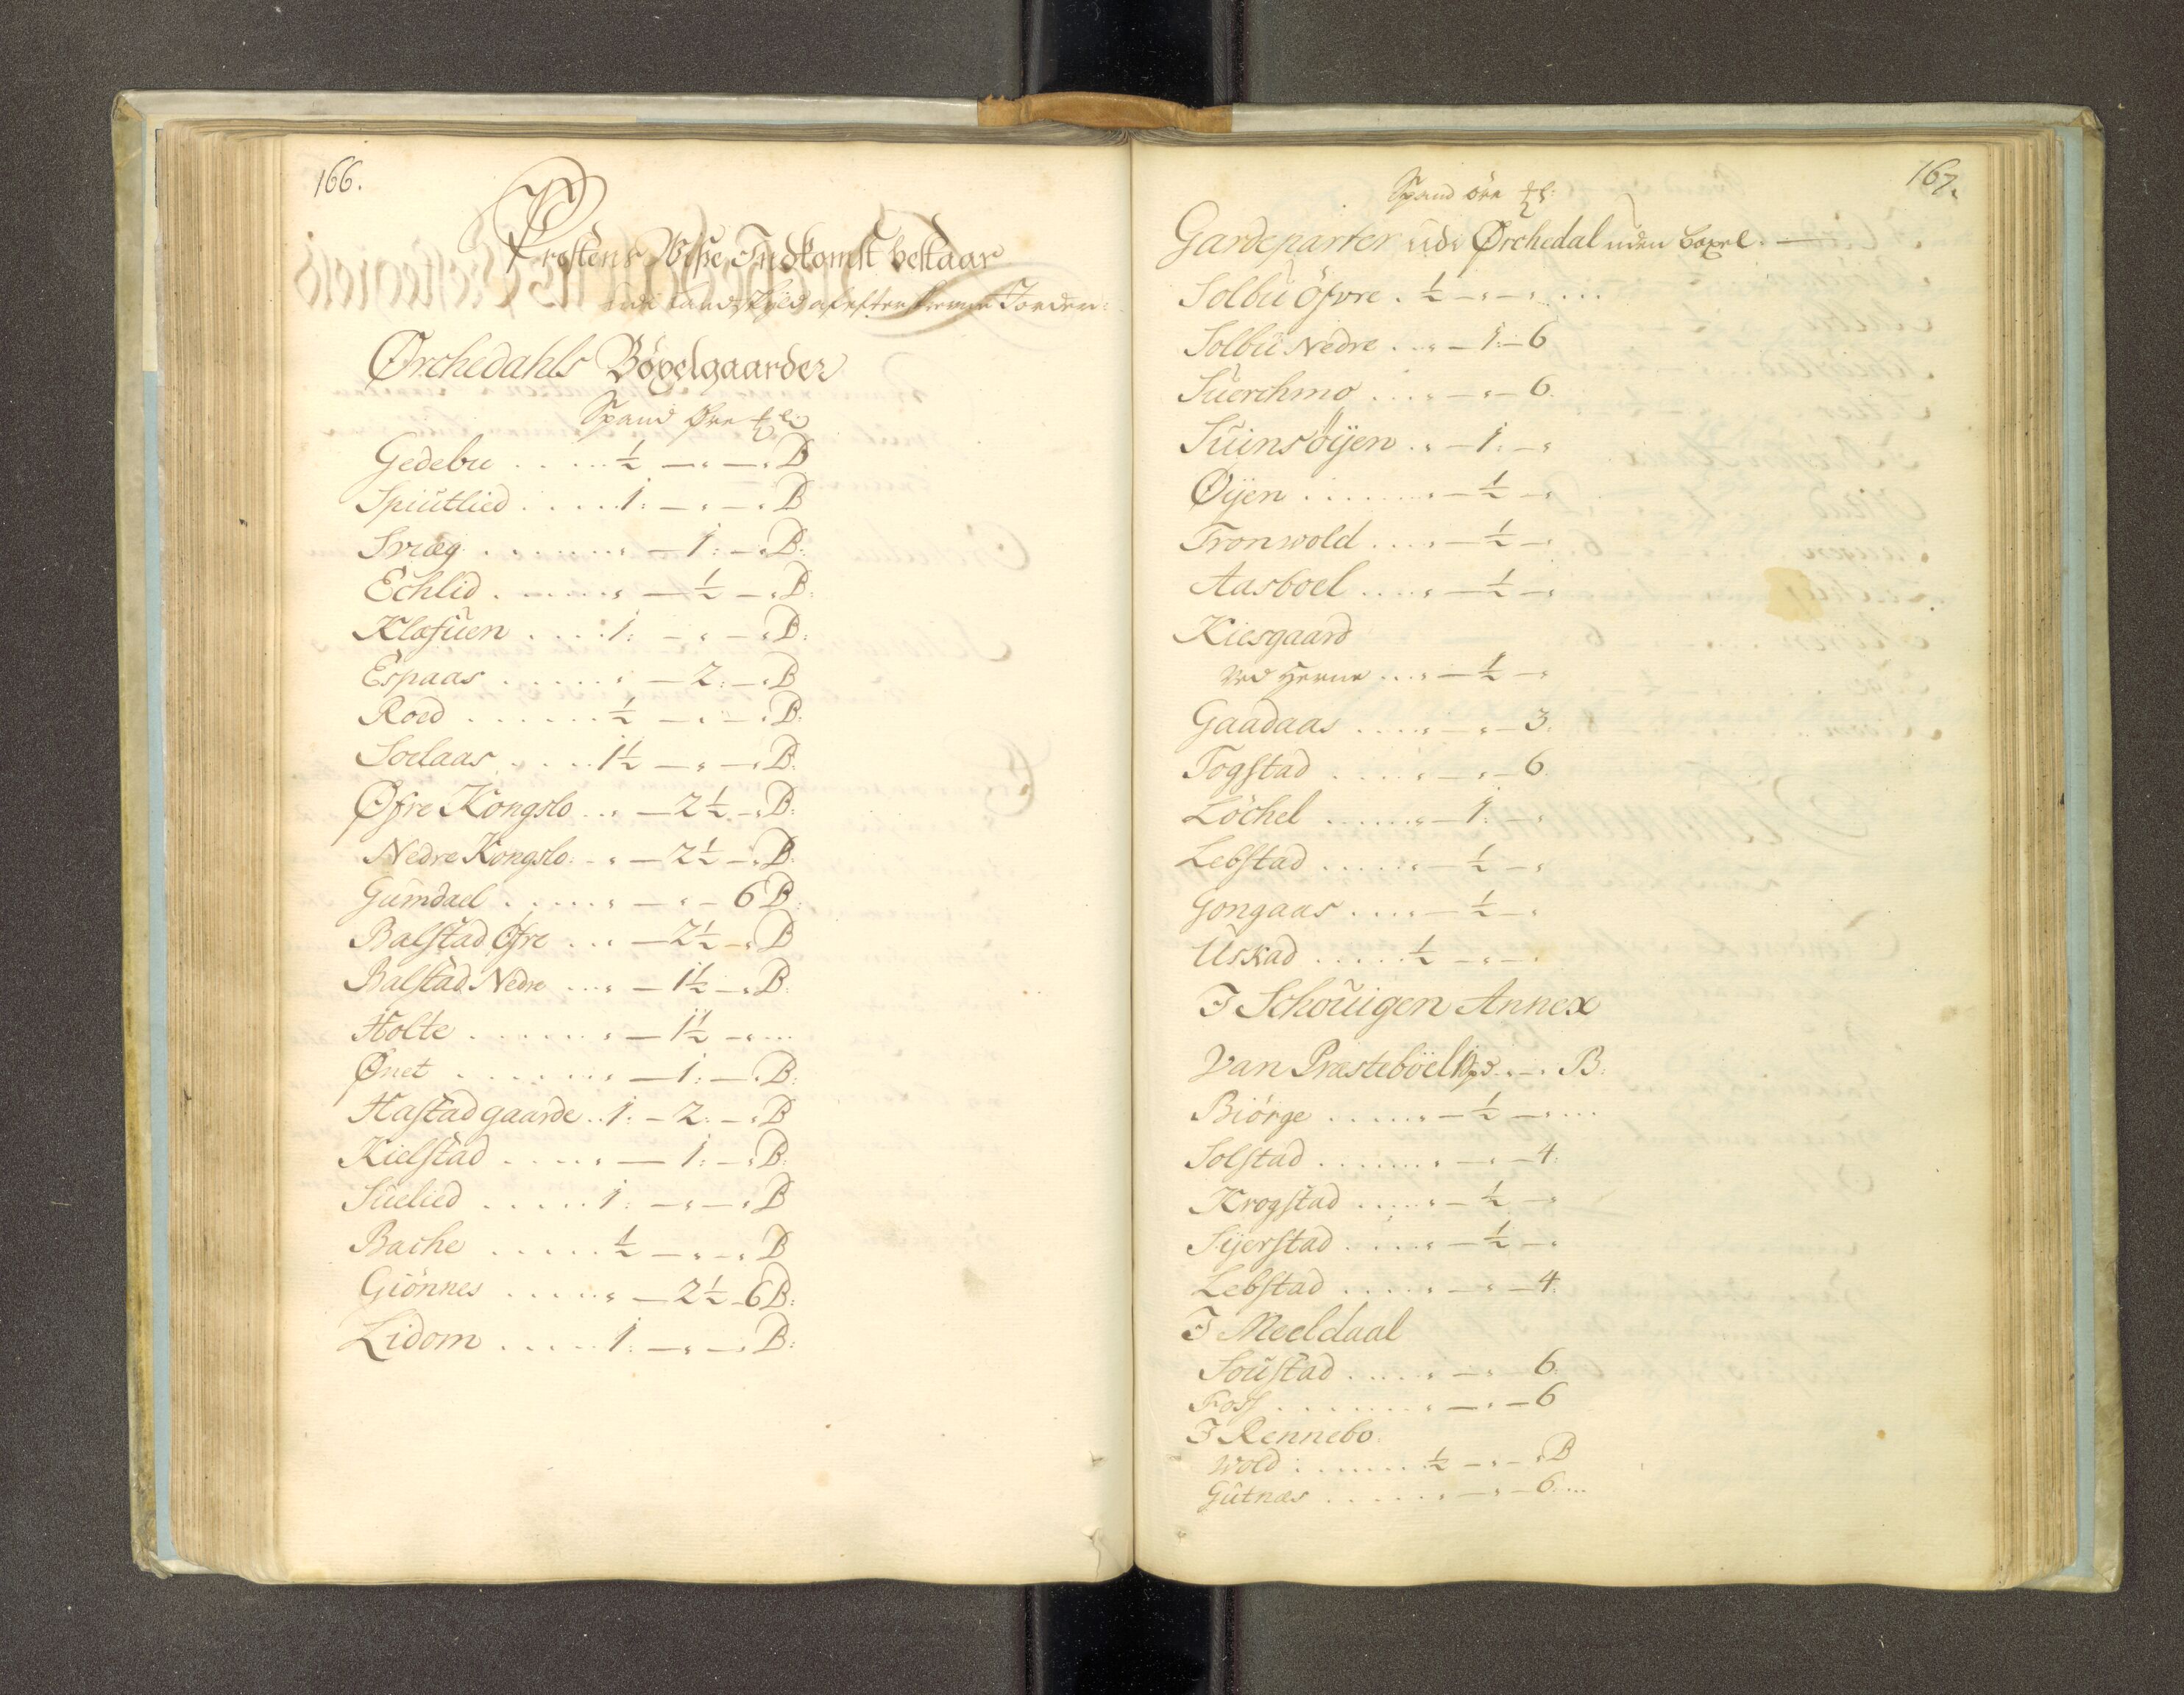 166.
Prestens Visse Indkomst bestaar
udi Landskyld af efterskrevne Jorder:
Ørchedahls Böxelgaarder
Spand Øre
Gedebu . . . . . ½ — „ — „ B
Spiutlied . . . . . 1: — „ — „ B
Sviæg . . . . . . . „ — 1: — „ B:
Echlid . . . . . . „ — ½ — „ B:
Klæfuen . . . . 1: — „ — „ B:
Espaas . . . . . „ — 2: — „ B
Roed . . . . . . ½ — „ — „ B:
Soelaas . . . . 1½ — „ — „ B:
Øfre Kongslo . . „ — 2½ — „ B:
Nedre Kongslo: - „ — 2½ — „ B:
Gumdael . . . . . „ — „ — 6 B:
Balstad Øfre . . „ — 2½ — „ B
Balstad Nedre . . . „ — 1½ — „ B:
Holte . . . . . . „ — 1½ — „ ...
Ønet . . . . . . „ — 1: — „ B:
Hastad gaarde . . 1: — 2: — „ B
Kielstad . . . . „ — 1: — „ B:
Suelied . . . . . 1: — „ — „ B
Bache . . . . . ½ — „ — „ B
Giönnes . . . . . „ — 2½ — 6 B:
Lidom . . . . . 1: — „ — „ B:
167.
Spand öre
Gardeparter udi Ørchedal uden Böxel. —
Solbu Öfvre . ½ — „ — „ ...
Solbu Nedre . . „ — 1: — 6
Suerchmo . . . . „ — „ — 6.
Suinsöyen . „ — 1: — „
Øyen . . . . . . . „ — ½ — „
Tronwold . . . . „ — ½ — „
Aasboel . . . . „ — ½ — „
Kiesgaard
ved Herne . . . „ — ½ — „
Gaadaas . . . . „ — „ — 3:
Togstad . . . . . „ — „ — 6.
Löchel . . . . . . „ — 1: — „
Lebstad . . . . . „ — ½ — „
Gongaas . . . . „ — ½ — „
Uskad . . . . . ½ — „ — „
I Schouigen Annex
Van Præsteböel 1 — „ B:
Biörge . . . . . „ — ½ — „ ...
Solstad . . . . . . . „ — „ — 4:
Krogstad . . . . . „ — ½ — „
Syerstad . . . . . „ — ½ — „
Lebstad . . . . . „ — „ — 4:
I Meeldaal
Soustad . . . . . „ — „ 6:
Foss . . . . . . . . „ — „ — 6
I Rennebo.
Wold : . . . . . . ½ — „ — „ B
Gutnæs . . . . . . „ — „ — 6. ...